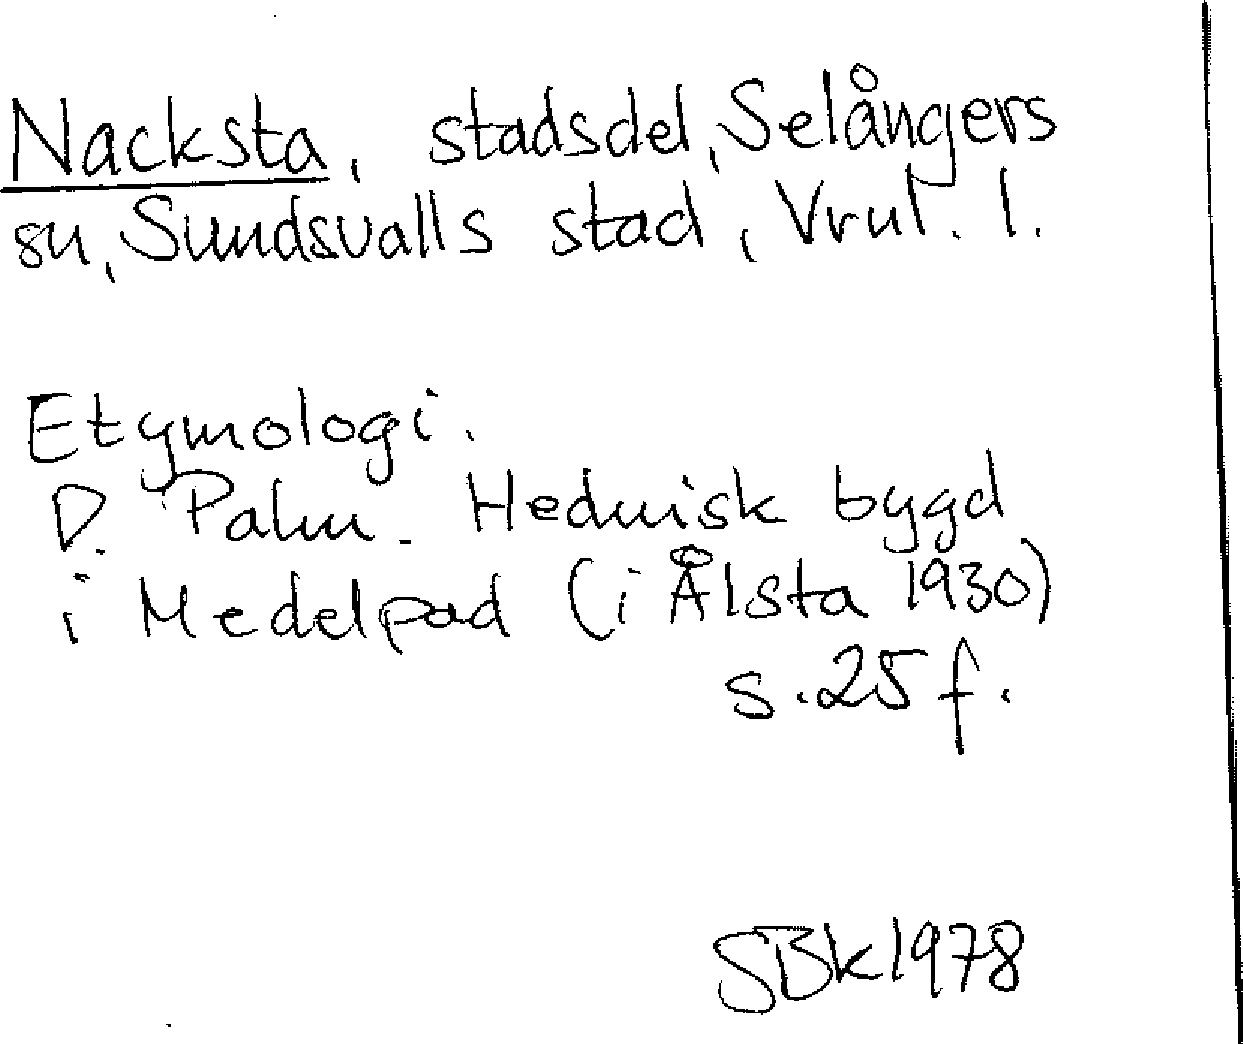 Nacksta, stadsdel, Selångers
sn, Sundsvalls stad, Vrnl. l.
Etymologi.
D. Palm. Hednisk bygd
i Medelpad (i Ålsta 1930)
s. 25 f.
SBk 1978